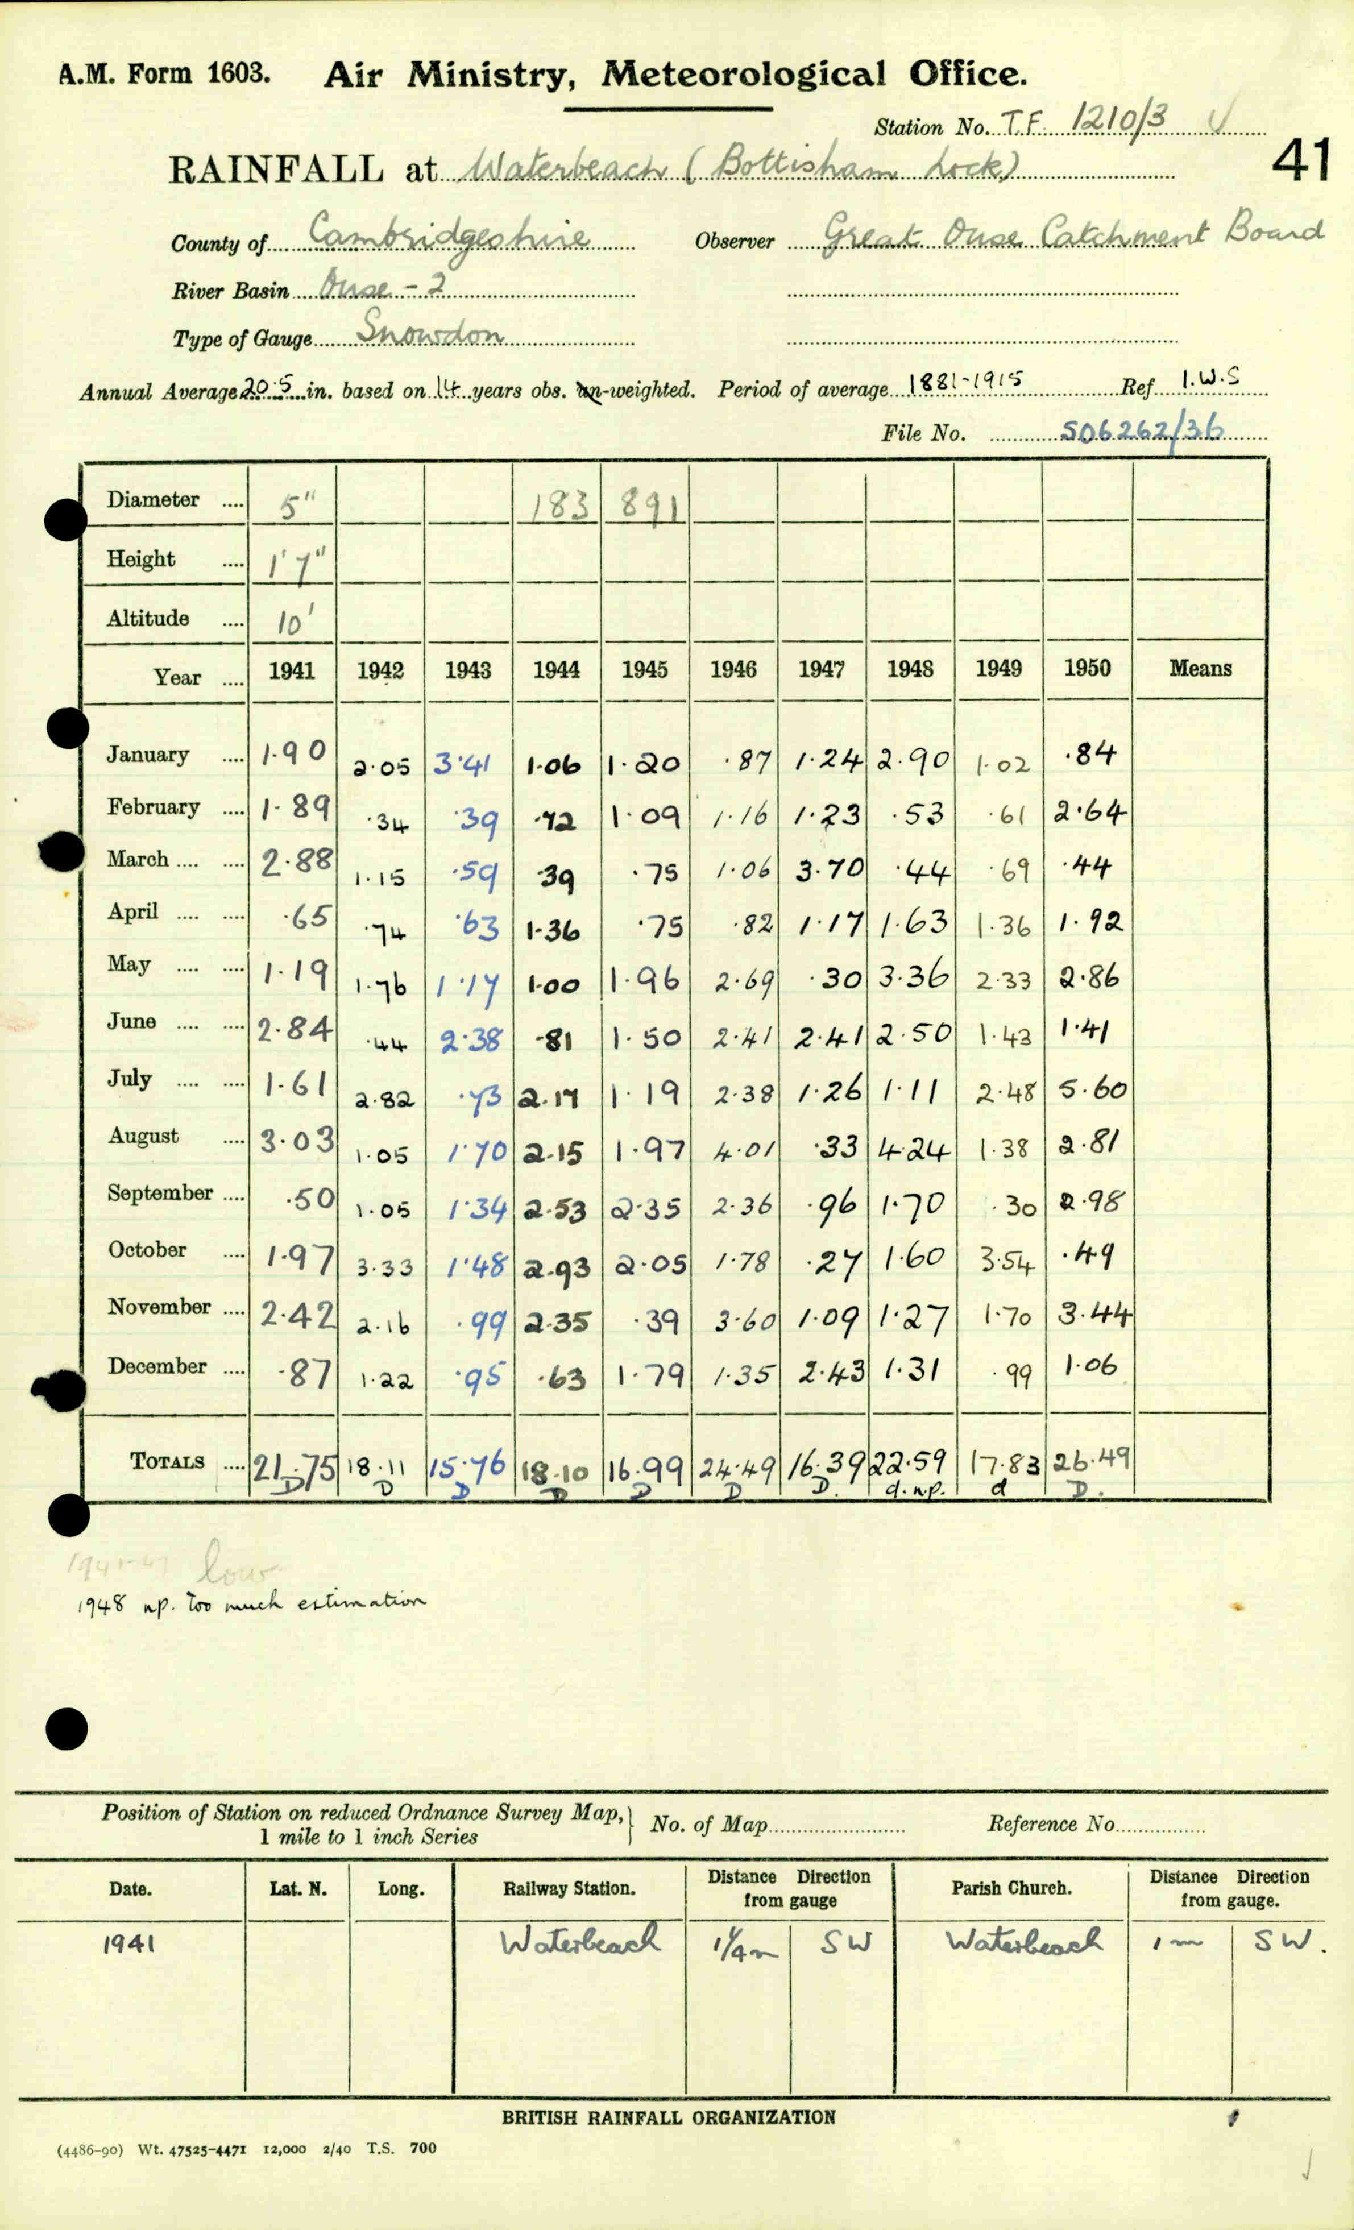 A.M. Form 1603. Air Ministry, Meteorological Office.
Station No. T.F. 1210/3 √
41
RAINFALL at Waterbeach (Bottisham Lock)
County of Cambridgeshire Observer Great Ouse Catchment Board
River Basin Ouse - 2
Type of Gauge Snowdon
Annual Average 20.5 in. based on 14 years obs. un-weighted. Period of average 1881-1915 Ref. I.W.S
File No. 506262/36
Diameter .... 5" 183 891
Height .... 1' 7"
Altitude .... 10'
Year .... 1941 1942 1943 1944 1945 1946 1947 1948 1949 1950 Means
January .... 1.90 2.05 3.41 1.06 1.20 .87 1.24 2.90 1.02 .84
February .... 1.89 .34 .39 .72 1.09 1.16 1.23 .53 .61 2.64
March .... .... 2.88 1.15 .59 .39 .75 1.06 3.70 .44 .69 .44
April .... .... .65 .74 .63 1.36 .75 .82 1.17 1.63 1.36 1.92
May .... .... 1.19 1.76 1.17 1.00 1.96 2.69 .30 3.36 2.33 2.86
June .... .... 2.84 .44 2.38 .81 1.50 2.41 2.41 2.50 1.43 1.41
July .... .... 1.61 2.82 .73 2.17 1.19 2.38 1.26 1.11 2.48 5.60
August .... 3.03 1.05 1.70 2.15 1.97 4.01 .33 4.24 1.38 2.81
September .... .50 1.05 1.34 2.53 2.35 2.36 .96 1.70 .30 2.98
October .... 1.97 3.33 1.48 2.93 2.05 1.78 .27 1.60 3.54 .49
November .... 2.42 2.16 .99 2.35 .39 3.60 1.09 1.27 1.70 3.44
December .... .87 1.22 .95 .63 1.79 1.35 2.43 1.31 .99 1.06
TOTALS .... 21.75 18.11 15.76 18.10 16.99 24.49 16.39 22.59 17.83 26.49
D D D D D D D. d.n.p. d D.
low
1948 n.p. too much estimation
Position of Station on reduced Ordnance Survey Map, } No. of Map Reference No.
1 mile to 1 inch Series
Date. Lat. N. Long. Railway Station. Distance Direction from gauge Parish Church. Distance Direction from gauge.
1941 Waterbeach 1/4 m SW Waterbeach 1 m SW.
BRITISH RAINFALL ORGANIZATION
(4486-90) Wt. 47525-4471 12,000 2/40 T.S. 700